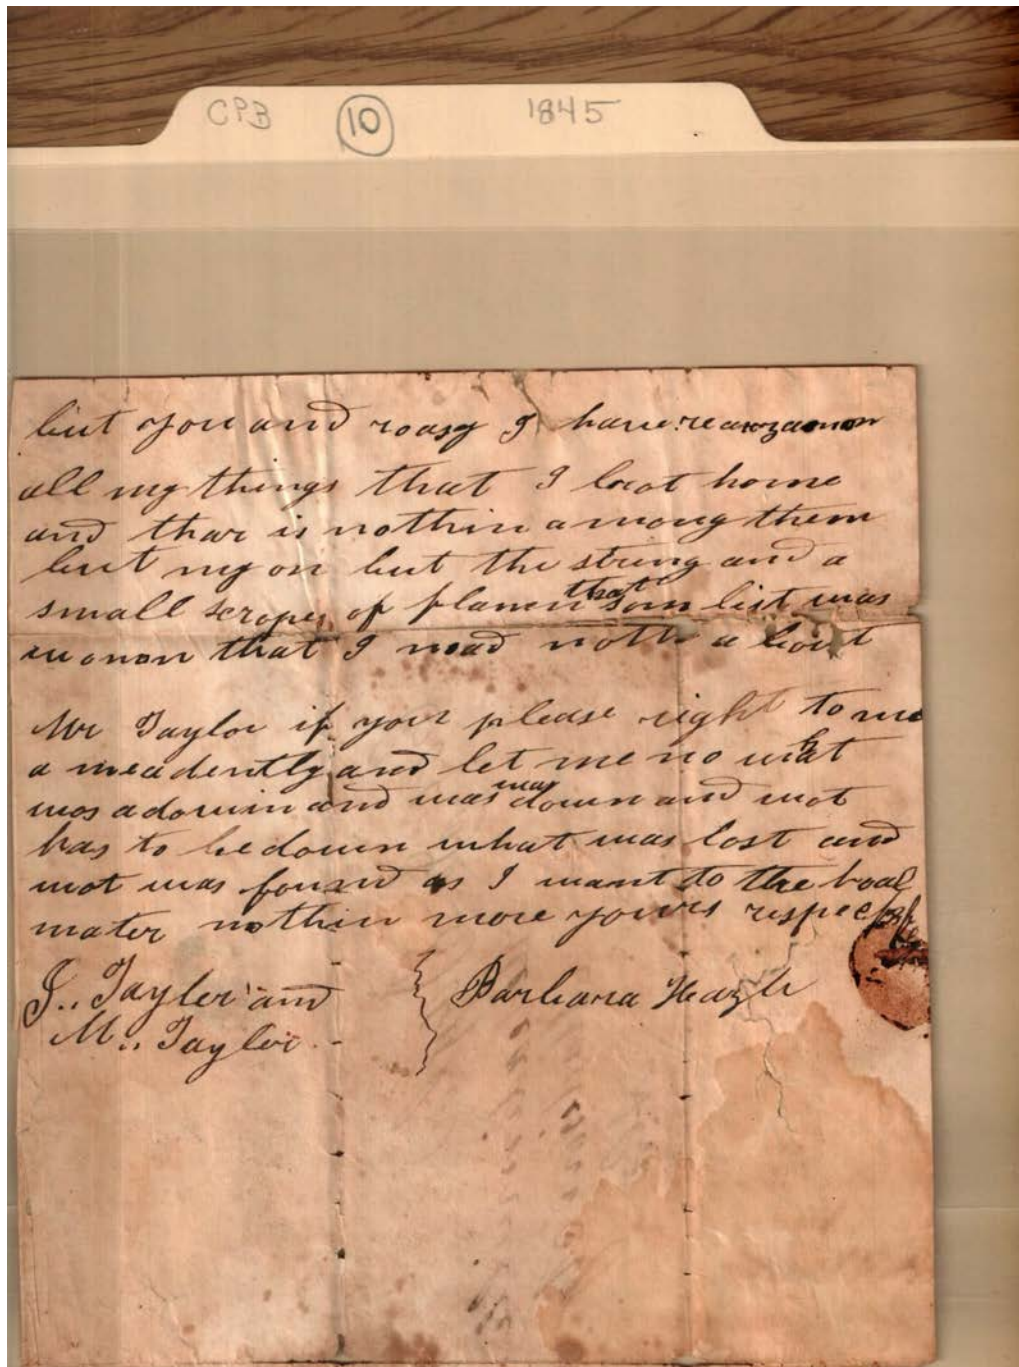 CPB 10 1845
but you and roasy I have
all my things that I braot home
and thar is nothin among them
but my on but the string and a
small scrapes of flanen that som list was
that I noad noth a bout
Mr Taylor if your please right to me
a meadently and let me no what
was a dowin and was was down and wot
has to be down what was lost and
wot was found as I want to the hoal
mater nothin more yours respectf
J.. Taylor and
M.. Taylor
Barbara